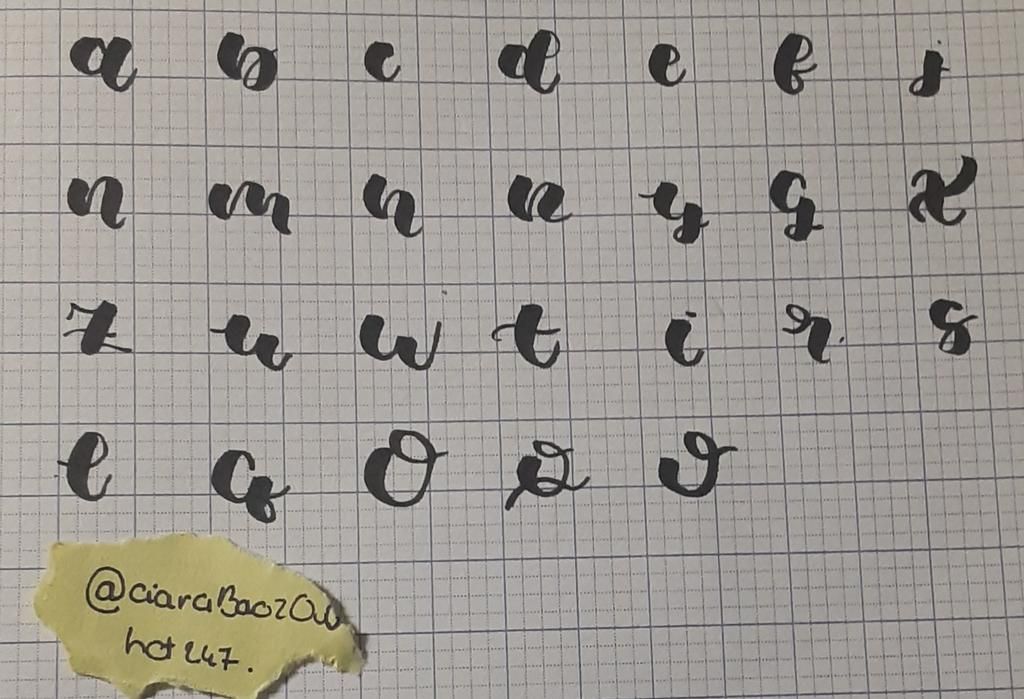 a b c d e f j
n m h n y g x
z u w t i r s
l q o v
@ciaraBaozOw
hot247.